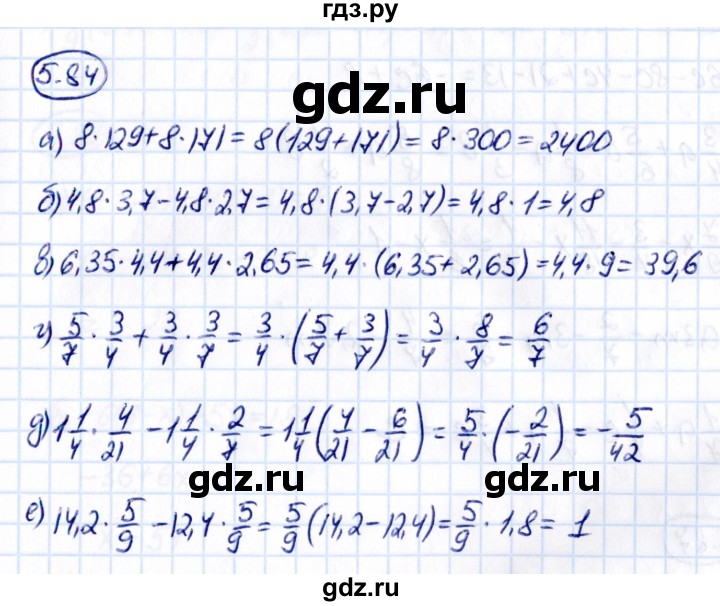 гдз.ру
5.84
gdz.ru
а) 8·129+8·171=8(129+171)=8·300=2400
б) 4,8·3,7-4,8·2,7=4,8·(3,7-2,7)=4,8·1=4,8
в) 6,35·4,4+4,4·2,65=4,4·(6,35+2,65)=4,4·9=39,6
г) 5/7·3/4+3/4·3/7=3/4·(5/7+3/7)=3/4·8/7=6/7
д) 1 1/4·4/21-1 1/4·2/7=1 1/4(4/21-6/21)=5/4·(-2/21)=-5/42
gdz.ru gdz.ru
е) 14,2·5/9-12,4·5/9=5/9(14,2-12,4)=5/9·1,8=1
gdz.ru